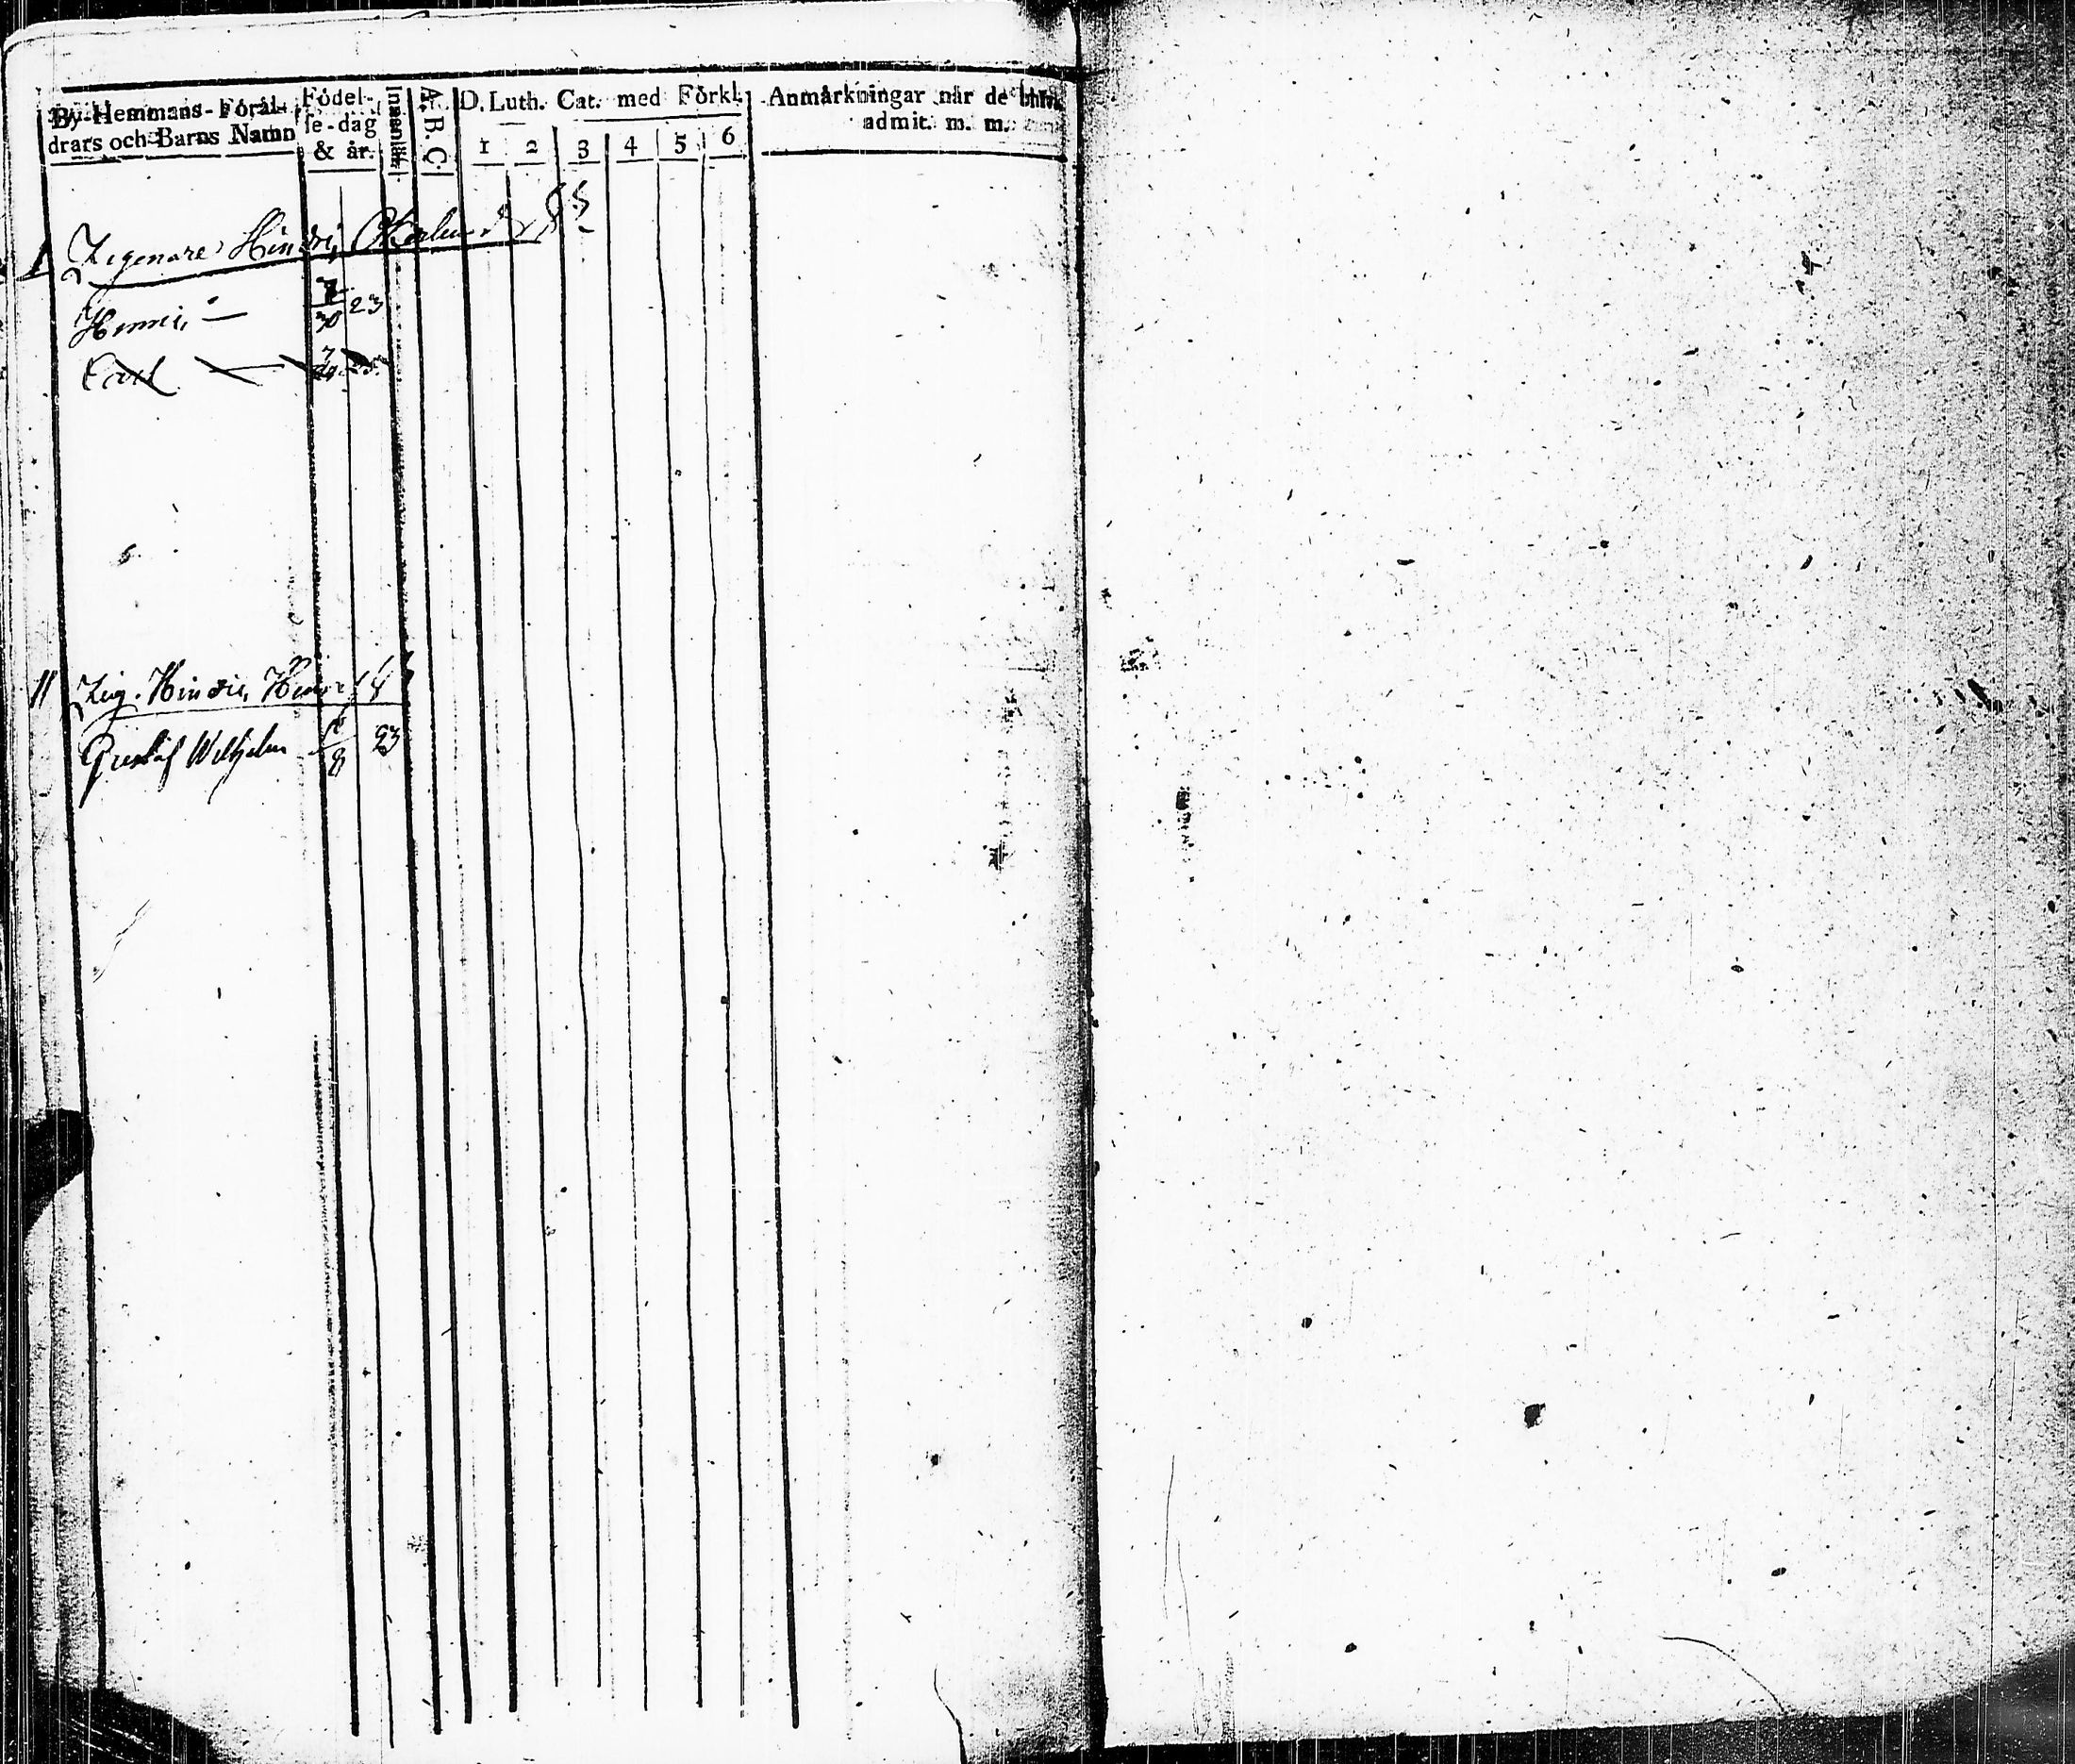 By-Hemmans-Föräl-
drars och Barns Namn
Födel-
se-dag
& år.
Innenläs.
A. B. C.
D. Luth. Cat. med Förkl.
1 2 3 4 5 6
Anmärkningar når de blifv.
admit. m. m.
Zigenare Hindric
Henric — 23
Carl —
Zig. Hindric
Gustaf Wilhelm 8 23